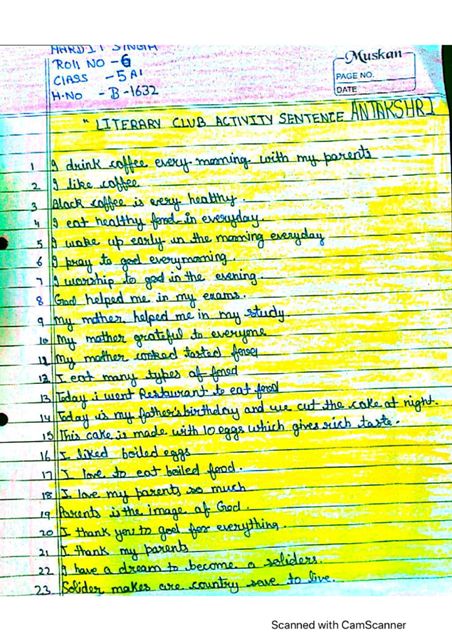 HARDIT SINGH
ROll NO - 6
CLASS - 5 A1
H.NO - B - 1632
Muskan
PAGE NO.
DATE
" LITERARY CLUB ACTIVITY SENTENCE ANTAKSHRI
1 I drink coffee every morning with my parents
2 I like coffee
3 Black coffee is every healthy.
4 I eat healthy food in everyday.
5 I wake up early in the morning everyday
6 I pray to god everymorning.
7 I worship to god in the evening.
8 God helped me in my exams.
9 My mother helped me in my study
10 My mother grateful to everyone
11 My mother cooked tasted food
12 I eat many types of foood
13 Today i went Restaurant to eat food
14 Today is my father's birthday and we cut the cake at night.
15 This cake is made with 10 eggs which gives rich taste.
16 I liked boiled eggs
17 I love to eat boiled food.
18 I love my parents so much
19 Parents is the image of God.
20 I thank you to god for everything.
21 I thank my parents
22 I have a dream to become a soliders.
23 Solider makes are country save to live.
Scanned with CamScanner